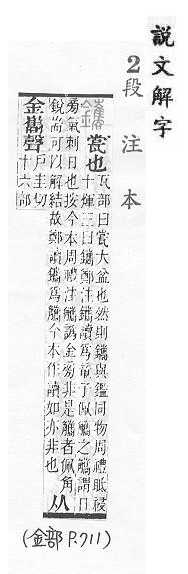 說文解字
2段注本
鑴 瓽也
瓦部曰瓽大盆也然則鑴與鑑同物周禮眡祲
十煇三曰鑴鄭注鑴讀爲童子佩觿之觿謂日
旁氣刺日也按今本周禮注觿譌金旁非是觿者佩角
銳耑可以解結故鄭讀鑴爲觿今本作讀如亦非也
从
金巂聲
戶圭切
十六部
(金部 P.711)